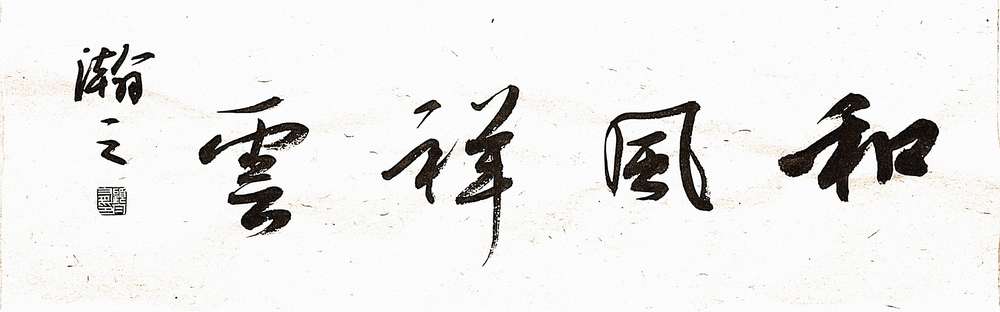 和風祥雲
瀚之